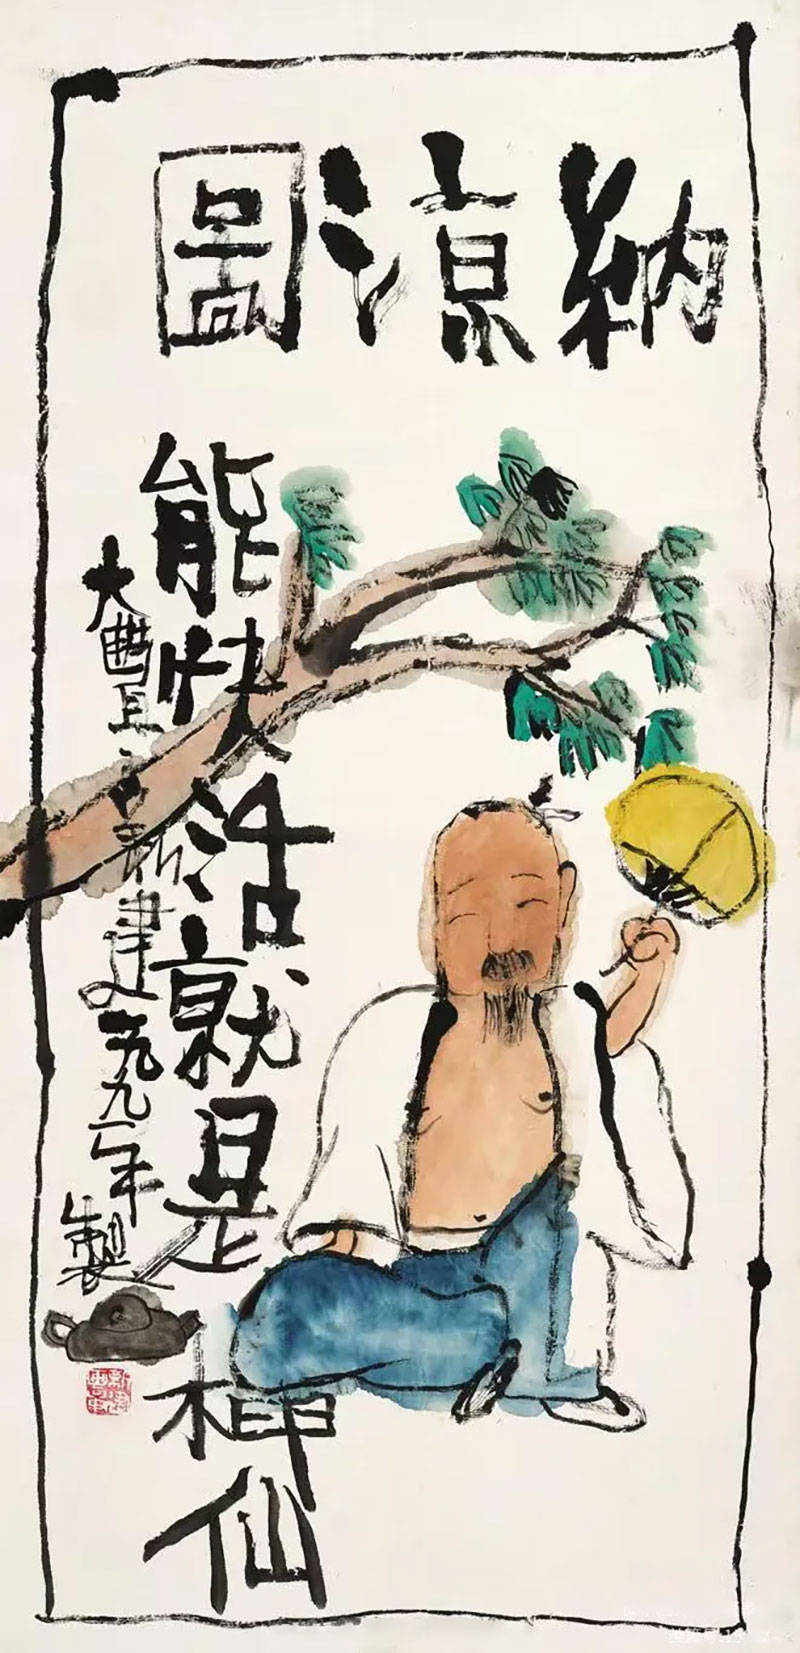 納涼圖
能快活就是神仙
大豐新建一九九一年製